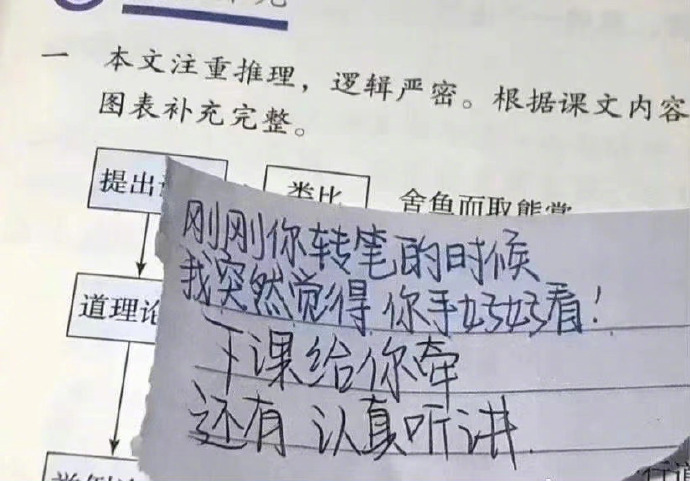 一 本文注重推理，逻辑严密。根据课文内容
图表补充完整。
提出
类比
舍鱼而取熊掌
刚刚你转笔的时候
我突然觉得 你手好好看！
道理论
下课给你牵
还有 认真听讲.